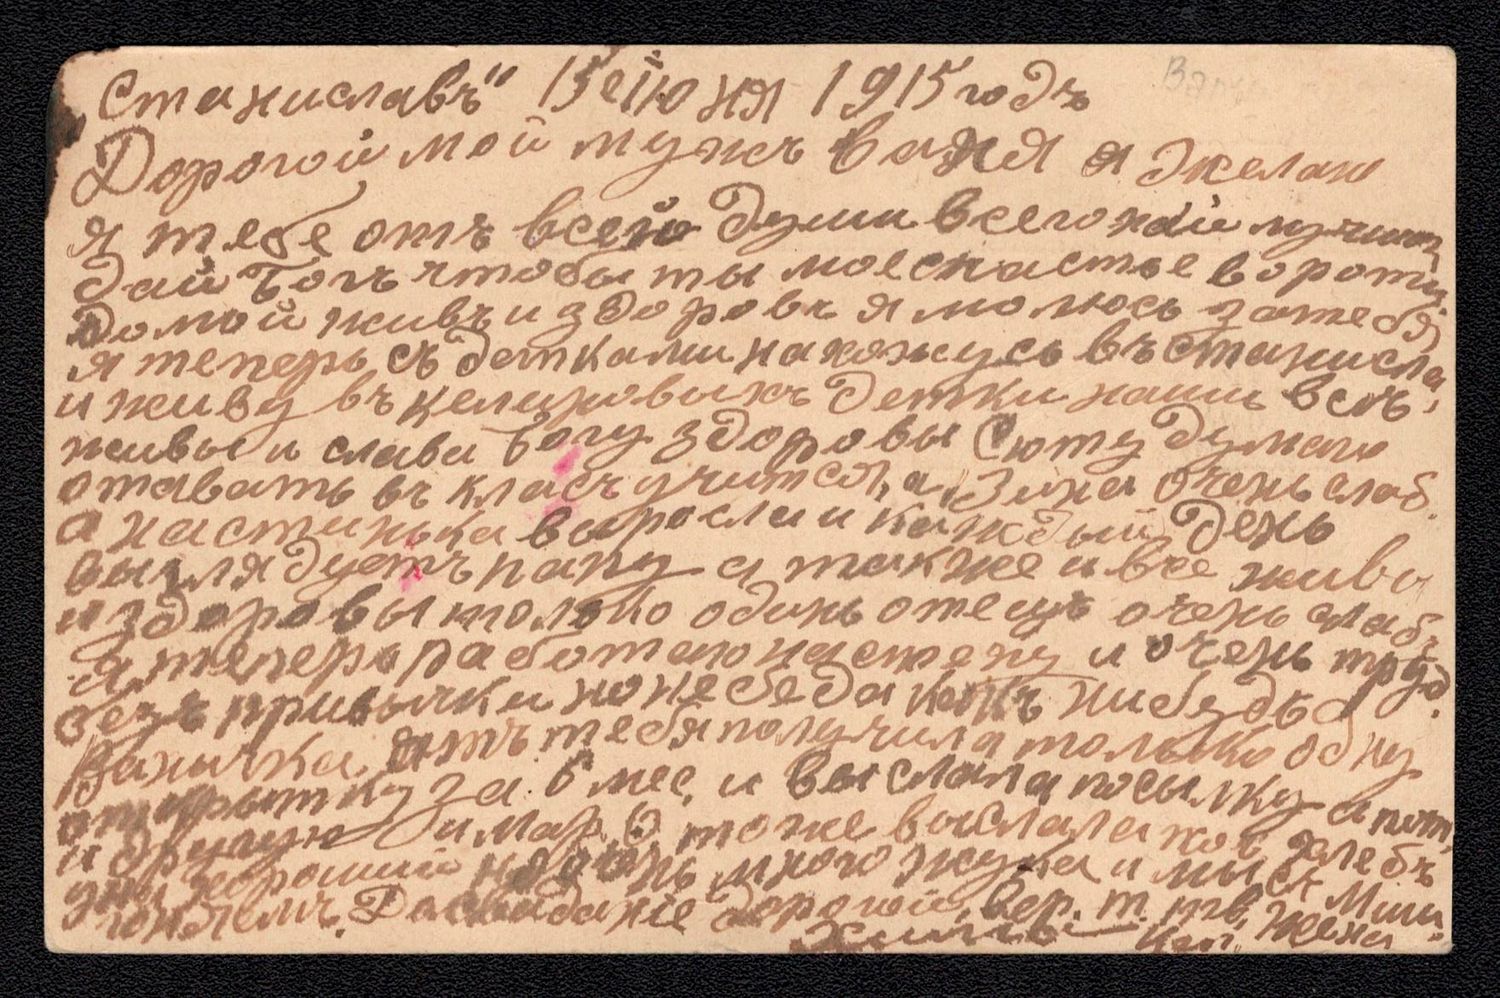 Станиславъ" 15 е Июня 1915 годъ
Дорогой мой мужъ Ваня я желаю
я тебе отъ всей души всего
дай Богъ чтобы ты мое счастье
домой живъ и здоровъ я молюсь за тебя
я теперь съ детками нахожусь въ Станисла
и живу въ детки наши всѣ
живы и слава Богу здоровы думаю
отавать въ класъ учится, а Зина очень слаб.
а настинька выросла и каждый день
папу а также и все живы
и здоровы только одинъ отецъ очень слабъ
я теперь работаю на степу и очень труд.
безъ привычки но не беда
Ваничка отъ тебя получила только одну
открытку за 6 мес. и выслала посылку а пот,
и другую 6 мар. тоже выслала хлебъ
хорошій много и мы съ
Досвиданіе дорогой, вер. т. тв, жена